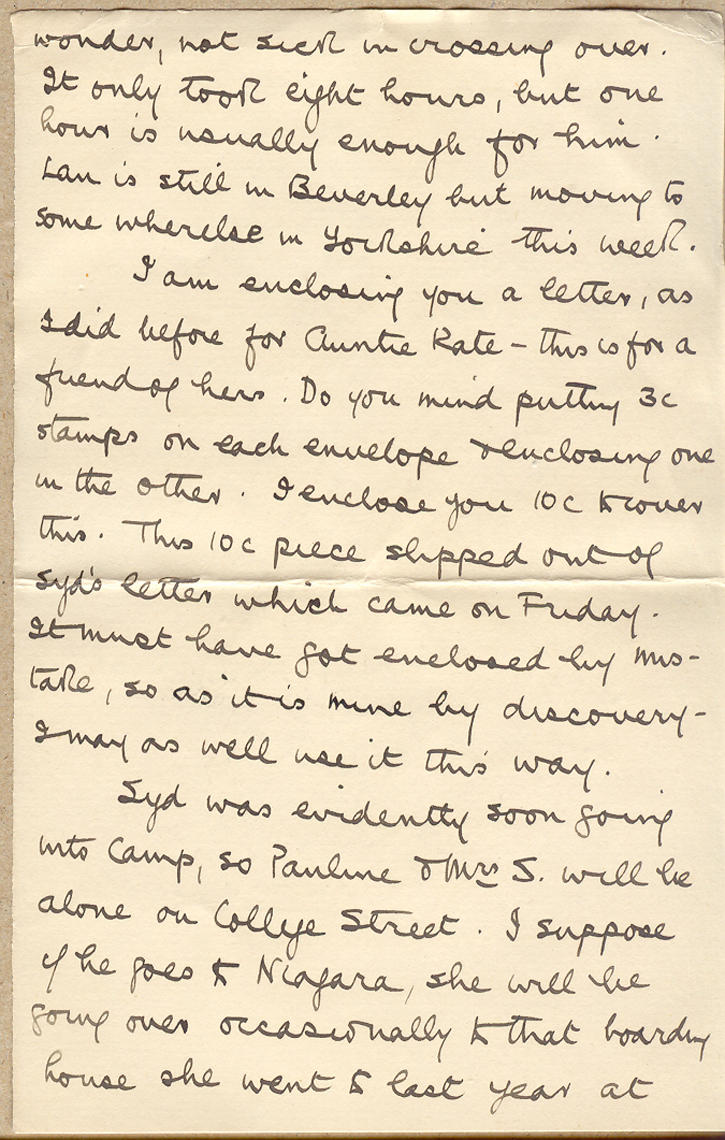 wonder, not sick in crossing over.
It only took eight hours, but one
hour is usually enough for him.
Lan is still in Beverley but moving to
some wherelse in Yorkshire this week.
I am enclosing you a letter, as
I did before for Auntie Kate – this is for a
friend of hers. Do you mind putting 3c
stamps on each envelope & enclosing one
in the other. I enclose you 10c to cover
this. This 10c piece slipped out of
Syd's letter which came on Friday.
It must have got enclosed by mis-
take, so as it is mine by discovery –
I may as well use it this way.
Syd was evidently soon going
into Camp, so Pauline & Mrs S. will be
alone on College Street. I suppose
if he goes to Niagara, she will be
going over occasionally to that boarding
house she went to last year at